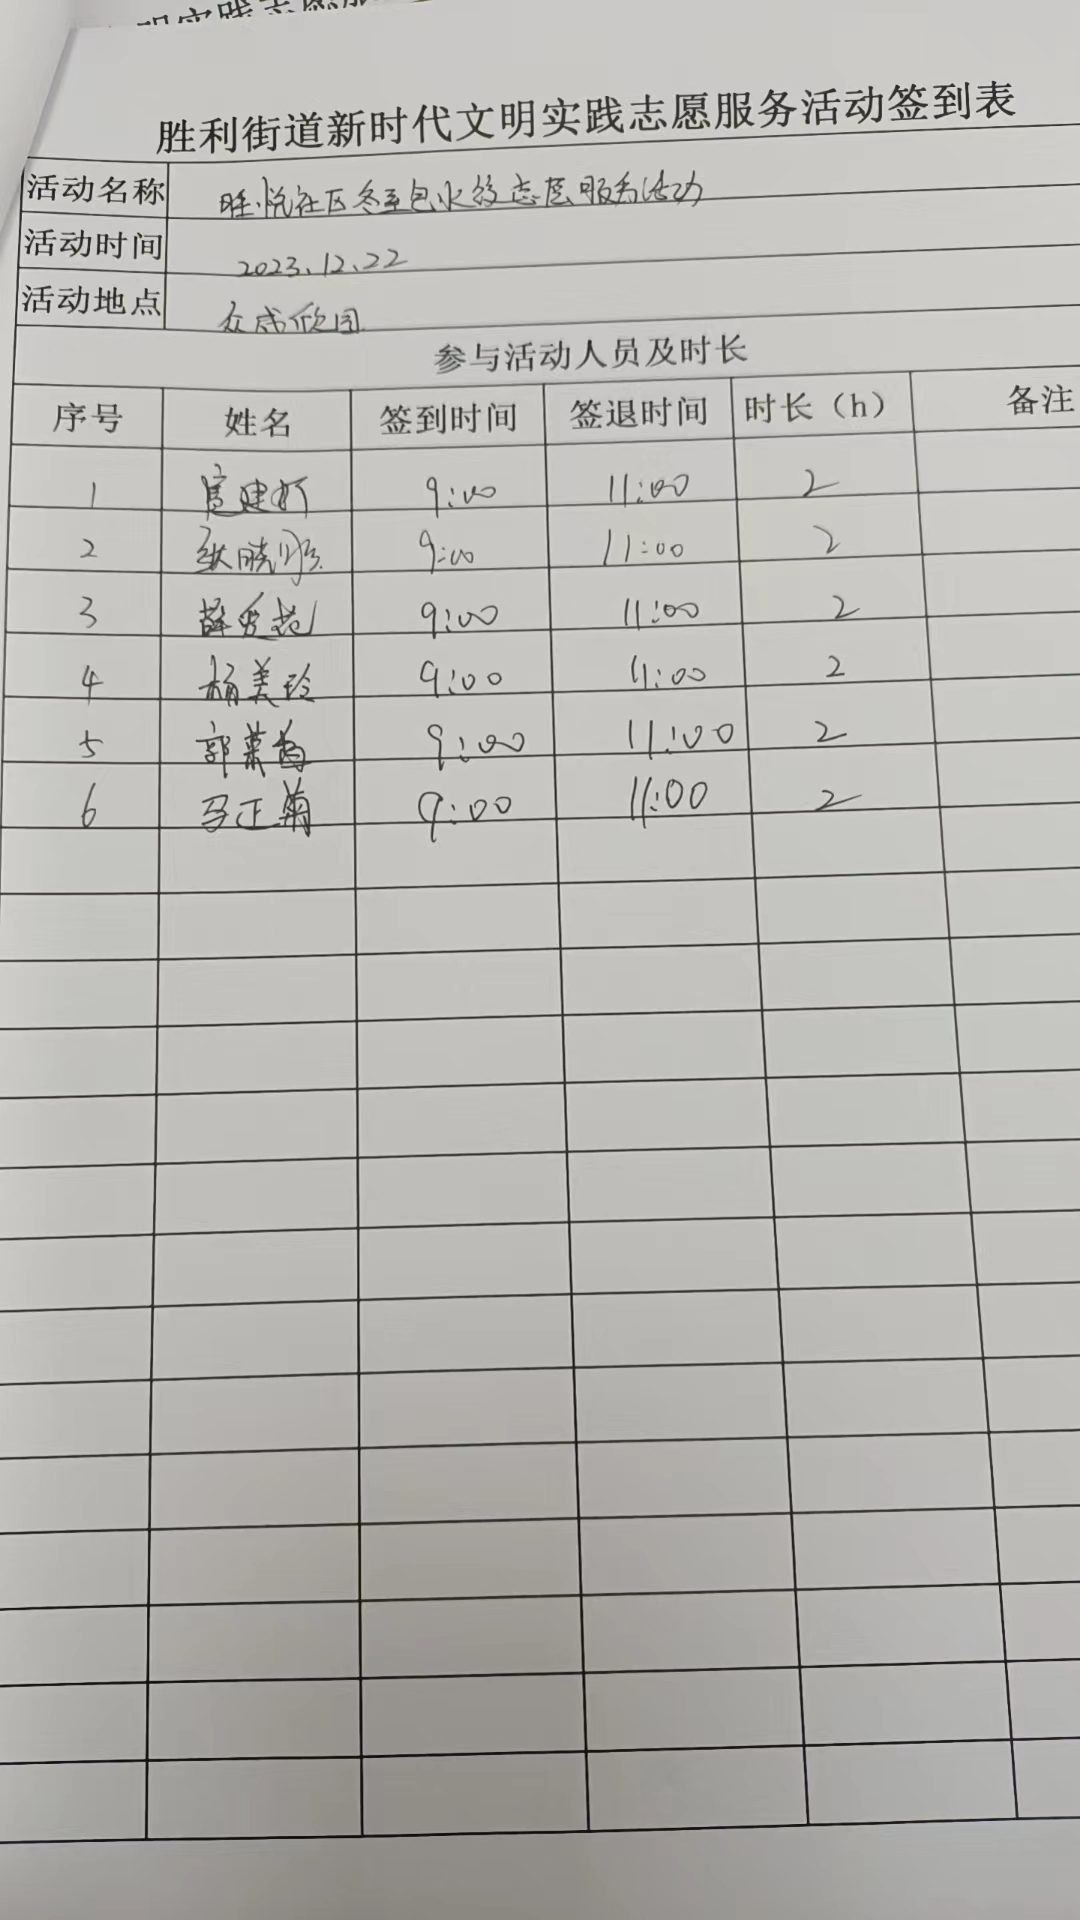 胜利街道新时代文明实践志愿服务活动签到表
活动名称 胜悦社区冬至包水饺志愿服务活动
活动时间 2023.12.22
活动地点 众成欣园
参与活动人员及时长
序号 姓名 签到时间 签退时间 时长（h） 备注
1 9:00 11:00 2
2 9:00 11:00 2
3 9:00 11:00 2
4 杨美玲 9:00 11:00 2
5 郭 9:00 11:00 2
6 马正菊 9:00 11:00 2